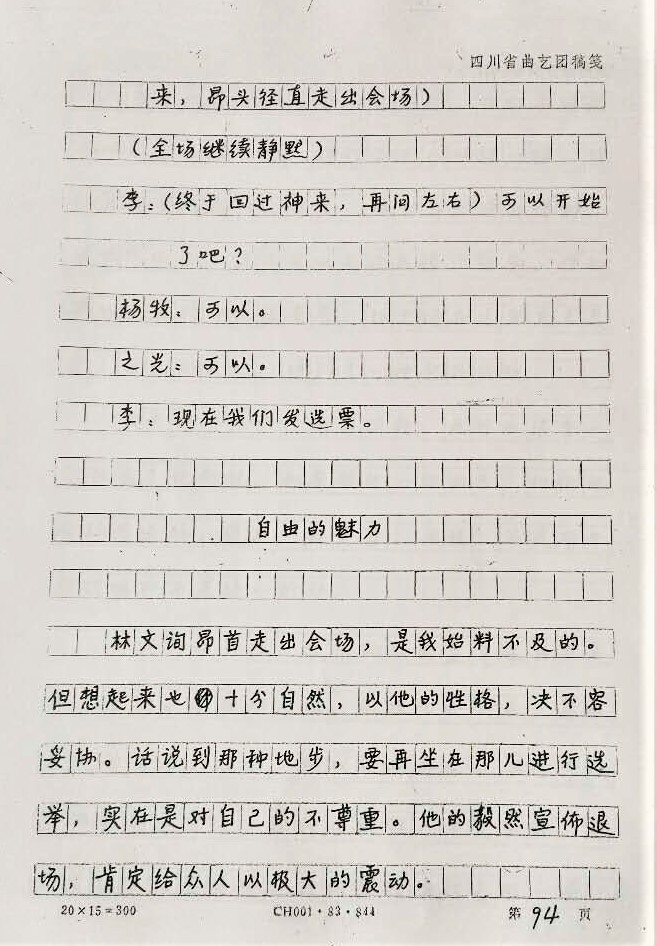 四川省曲艺团稿笺
来，昂头径直走出会场）
（全场继续静默）
李：（终于回过神来，再问左右）可以开始
了吧？
杨牧：可以。
之光：可以。
李：现在我们发选票。
自由的魅力
林文询昂首走出会场，是我始料不及的。
但想起来也十分自然，以他的性格，决不容
妥协。话说到那种地步，要再坐在那儿进行选
举，实在是对自己的不尊重。他的毅然宣佈退
场，肯定给众人以极大的震动。
20×15=300 CH001·83·844 第94页